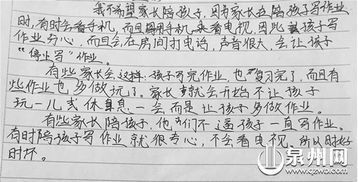 我不希望家长陪孩子,因为家长在陪孩子写作业
时,有时会看手机,而且用手机来看电视,因此让孩子写
作业分心,而且会在房间打电话,声音很大,会让孩子
"停止写"作业。
有些家长会这样:孩子写完作业,也"复习完了,而且有
些作业也多做完了。家长就会开始不让孩子
玩一儿或休息息一会而是让孩子多做作业。
有些家长陪孩子,他"们不逼孩子一直写作业。
有时陪孩子写作业就很专心,不会看电视,所以时好
时坏。
泉州网
www.qzwb.com